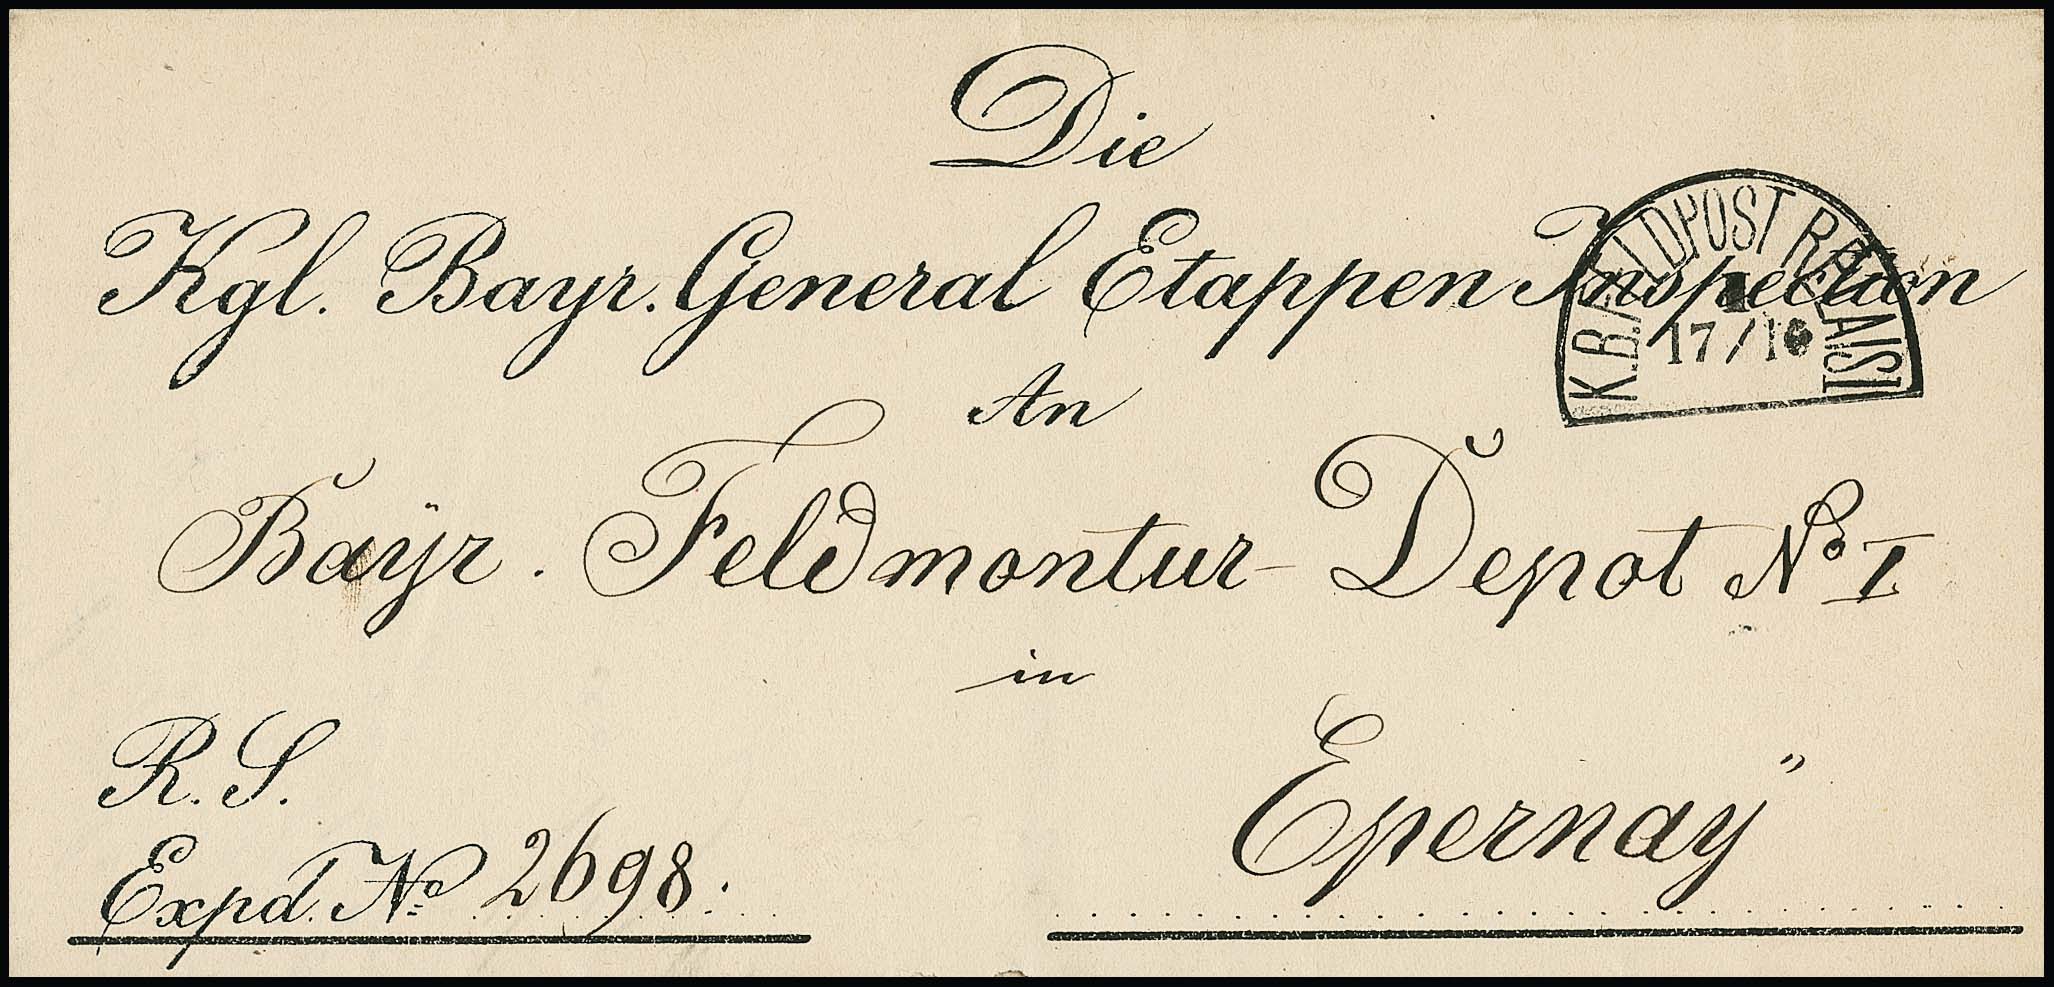 Die
Kgl. Bayr. General Etappen Inspection
K.B. FELDPOST RELAIS I
17/10
An
Bayr. Feldmontur-Depot No I
in
R. S.
Epernay"
Expd. No 2698.